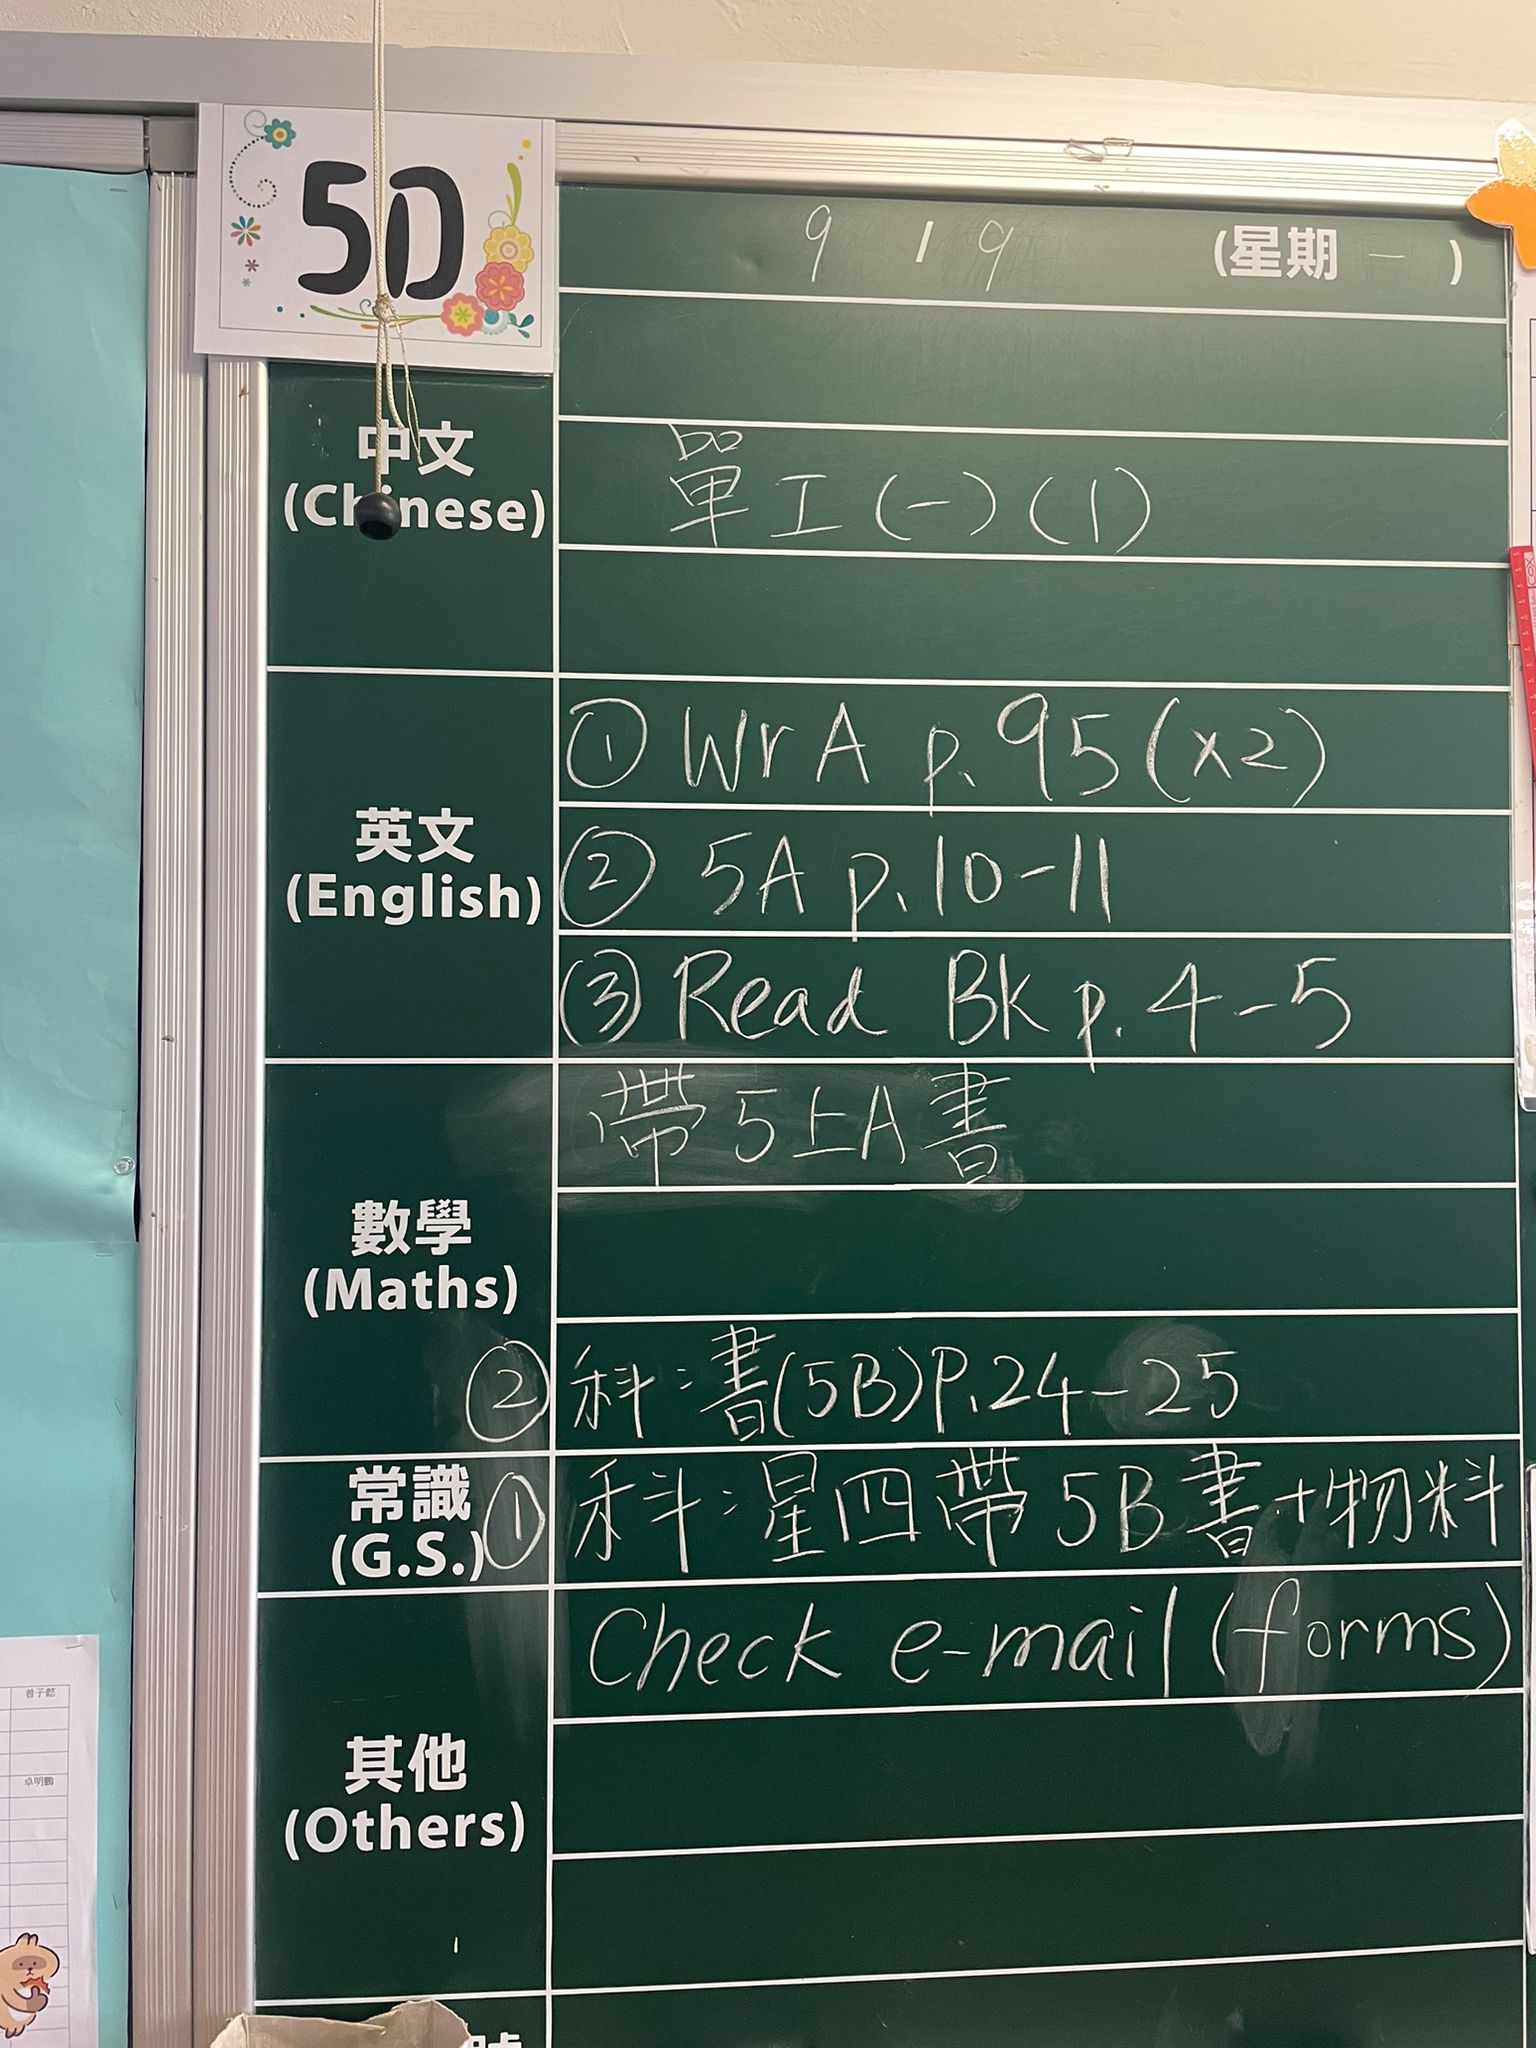 5D
9 / 9 (星期 一 )
中文
(Chinese)
單工(一)(1)
英文
(English)
① Wr A p.95(x2)
② 5A p.10-11
③ Read Bk p.4-5
數學
(Maths)
帶5上A書
② 科:書(5B)P.24-25
常識
(G.S.)
① 科:星四帶5B書+物料
其他
(Others)
Check e-mail (forms)
卓明鵬